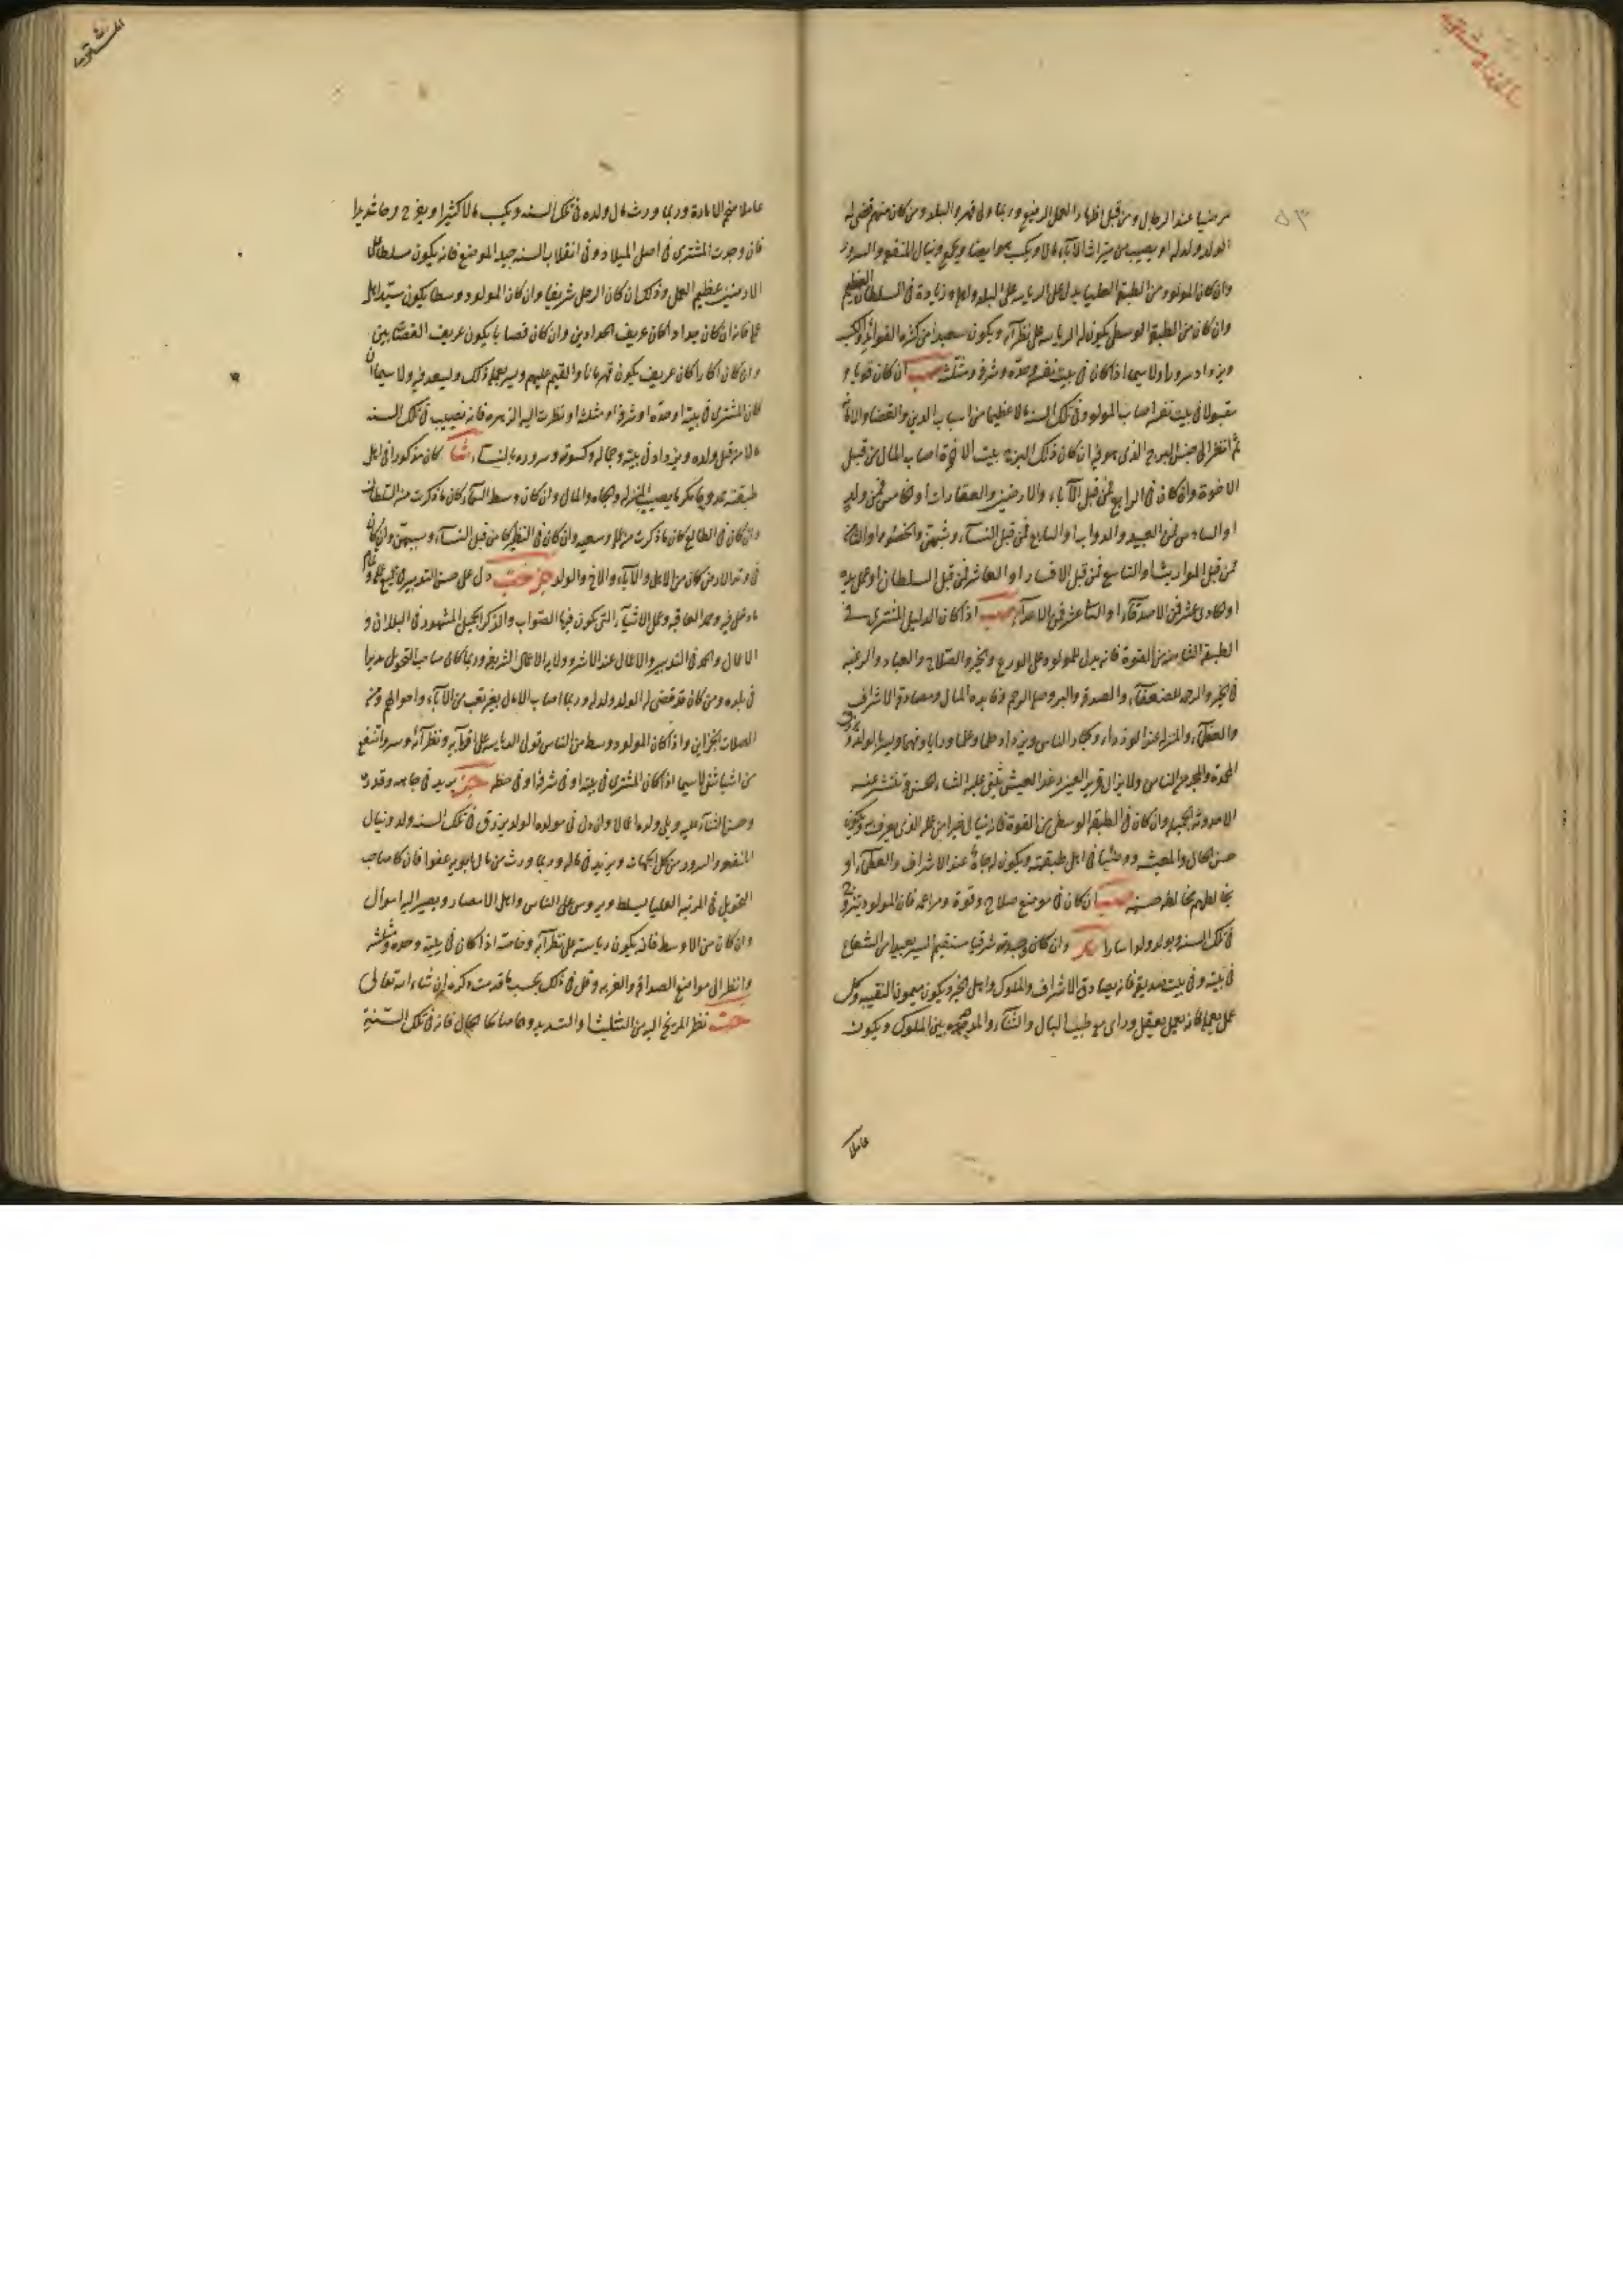 مرضيا عند الرجال ومن قبل اظهار العمل الرفيع وربما ولى قهر والبلد ومن كان منهم قضى له
الولد ولد له او يصيب من ميراث الآباء مالا ويكسب ايضا ويجمع وينال المنفعة والسرور
وان كان المولود من الطبقة العليا يدل على الرياسة على البلد واهله وزيادة في السلطان العظيم
وان كان من الطبقة الوسطى يكون له الرياسة على نظرآئه ويكون سعيدا من كثرة الفوائد والكسب
ويزداد سرورا ولا سيما اذا كان في بيت نفسه وحده وشرفه ومثلثه ان كان قويا و
مقبولا في بيت نفسه اصاب المولود في تلك السنة مالا عظيما من اسباب الدين والقضاء والامانة
ثم انظر الى جنس البرج الذى هو فيه ان كان ذلك البرج بيت الاخوة اصاب المال من قبل
الاخوة وان كان في الرابع فمن قبل الآباء والارضين والعقارات او الخامس فمن ولد
او السادس فمن العبيد والدواب او السابع فمن قبل النسآء وشبههن والخصوم او الثامن
فمن قبل المواريث او التاسع فمن قبل الاسفار او العاشر فمن قبل السلطان او عمل يده
او الحادى عشر فمن الاصدقآء او الثانى عشر فمن الاعدآء اذا كان الدليل المشترى في
الطبقة من القوة فانه يدل للمولود على الورع والخير والصلاح والعبادة والرغبة
في الخير والرحمة للضعفآء والصدقة والبر وصلة الرحم وفايدة المال ومصادقة الاشراف
والعظمآء والمنزلة عند الوزراء وكبار الناس ويزداد حلما وعلما وراياً وفهما ويسر بالولد
المحمدة والمجد مع الناس ولا يزال قرير العين رغد العيش يثنى عليه الثناء الحسن وتنتشر عنه
الاحدوثة الجميلة وان كان في الطبقة الوسطى من القوة فانه ينال خيرا من عمله الذى يعرف به ويكون
حسن الحال والمعيشة ومرضيا في اهل طبقته ويكون له جاه عند الاشراف والعظمآء او
يخالطهم مخالطة حسنة ان كان في موضع صلاح وقوة ومزاعمة فان المولود يتزوج
في تلك السنة ويولد ولدا سارا وان كان جيدة شرقيا مستقيم السير بعيدا من الشعاع
في بيته وفي بيت صديقه فانه يصادق الاشراف والملوك واهل الخير ويكون ميمون النقيبة وكل
عمل يعمله فانه يعمل بعقل وراى مع طيب البال والثنآء والمدحة بين الملوك ويكون
عاملا
عاملا منهم الامارة وربما ورث مال ولده في تلك السنة ويكسب مالا كثيرا ويفرح فرحا شديدا
فان وجدت المشترى في اصل الميلاد وفي انقلاب السنة جيد الموضع فانه يكون مسلطا على
الارضين عظيم العمل وذلك ان كان الرجل شريفا وان كان المولود وسطا يكون سيد اهل
عمله فانه ان كان حدادا كان عريف الحدادين وان كان قصابا يكون عريف القصابين
وان كان اكارا كان عريف يكون قهرمانا والقيم عليهم ويسر بعمله ذلك وليسعد فيه ولا سيما ان
كان المشترى في بيته او حده او شرفه او مثلثه او نظرت اليه الزهرة فانه يصيب في تلك السنة
مالا من قبل ولده ويزداد في بيته وجماله وكسوته وسروره بالنسآء كان مذكورا في اهل
طبقته ممدوحا مكرما يصيب المنزلة والجاه والمال وان كان وسط السمآء كان ما ذكرت من السلطان
وان كان في الطالع كان ما ذكرت من عمله وسعيه وان كان في النظير كان من قبل النسآء وسببهن وان كان
في وتد الارض كان من الاهل والآباء والاخ والولد دل على حسن التدبير في جميع عمله
ما دخل فيه وحمد العاقبة وعمل الاشيآء التى يكون فيها الصواب والذكر الجميل المشهود في البلدان و
الاعمال والحمد في التدبير والاعمال عند الاشراف وولاية الاعمال الشريفة وربما كان صاحب التحويل مدبرا
في بلده ومن كان قد قضى له الولد ولد له وربما اصاب الاموال بغير تعب من الآباء واموالهم ومن
الصلات الجزاين واذا كان المولود وسط من الناس تولى الرياسة على اقرآبه ونظرآئه وسر وانتفع
من اشيا شتى لا سيما اذا كان المشترى في بيته او في شرفه او في حظه يزيد في جاهه وقدره
وحسن الثنآء عليه ويلى ولده اعمالا وان دل في مولده الولد يرزق في تلك السنة ولد وينال
المنفعة والسرور من كل الجهات ويزيد في ماله وربما ورث من مال ابويه عفوا فان كان صاحب
التحويل في المرتبة العليا يسلط ويروس على الناس واهل الامصار ويصير اليه اموال
وان كان من الاوسط فانه يكون رياسته على نظرآئه وخاصة اذا كان في بيته وحده ومثلثته
وانظر الى مواضع الصداقة والغربة وقل في ذلك بحسب ما قدمت ذكره ان شاء الله تعالى
نظر المريخ اليه من التثليث او التسديد وهما صالحا الحال فانه في تلك السنة